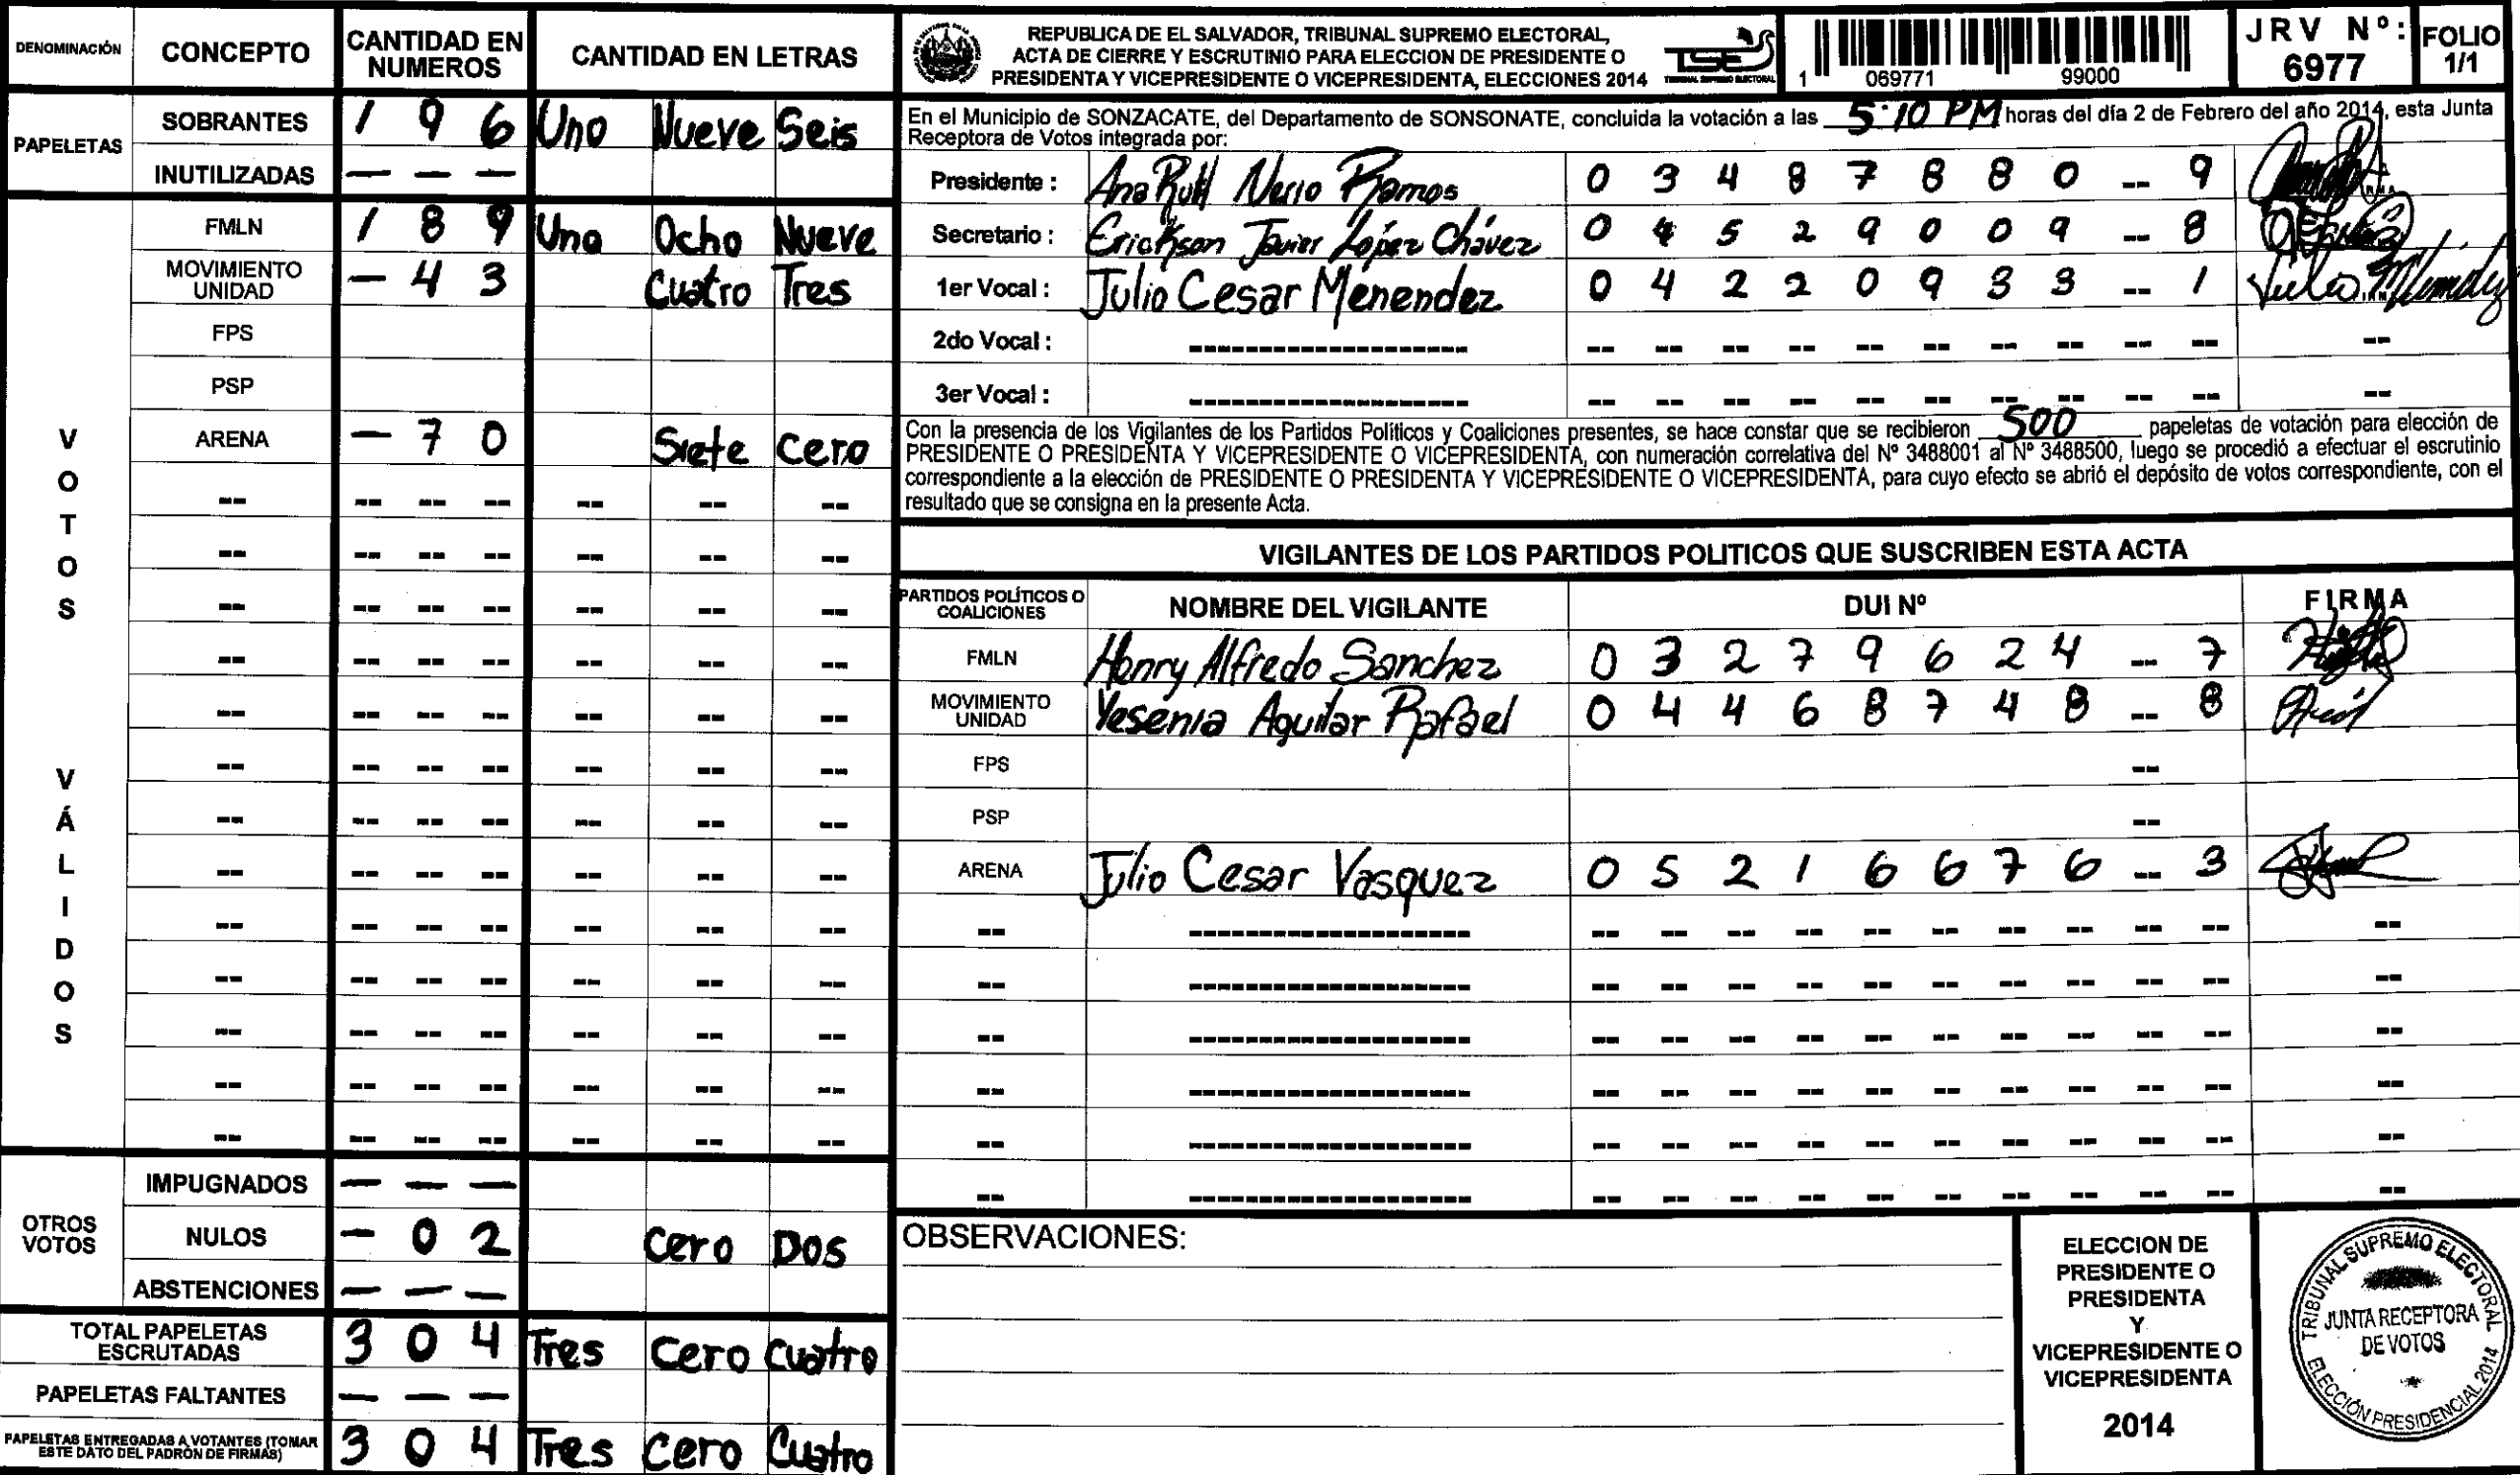 DENOMINACIÓN CONCEPTO CANTIDAD EN NUMEROS CANTIDAD EN LETRAS
PAPELETAS
SOBRANTES 1 9 6 Uno Nueve Seis
INUTILIZADAS — — —
VOTOS VÁLIDOS
FMLN 1 8 9 Uno Ocho Nueve
MOVIMIENTO UNIDAD — 4 3 Cuatro Tres
FPS
PSP
ARENA — 7 0 Siete Cero
-- -- -- -- -- -- --
-- -- -- -- -- -- --
-- -- -- -- -- -- --
-- -- -- -- -- -- --
-- -- -- -- -- -- --
-- -- -- -- -- -- --
-- -- -- -- -- -- --
-- -- -- -- -- -- --
-- -- -- -- -- -- --
-- -- -- -- -- -- --
-- -- -- -- -- -- --
-- -- -- -- -- -- --
-- -- -- -- -- -- --
OTROS VOTOS
IMPUGNADOS — — —
NULOS — 0 2 Cero Dos
ABSTENCIONES — — —
TOTAL PAPELETAS ESCRUTADAS 3 0 4 Tres Cero Cuatro
PAPELETAS FALTANTES — — —
PAPELETAS ENTREGADAS A VOTANTES (TOMAR ESTE DATO DEL PADRÓN DE FIRMAS) 3 0 4 Tres Cero Cuatro
REPUBLICA DE EL SALVADOR, TRIBUNAL SUPREMO ELECTORAL,
ACTA DE CIERRE Y ESCRUTINIO PARA ELECCION DE PRESIDENTE O
PRESIDENTA Y VICEPRESIDENTE O VICEPRESIDENTA, ELECCIONES 2014
TSE
TRIBUNAL SUPREMO ELECTORAL
1 069771 99000
JRV Nº: 6977
FOLIO 1/1
En el Municipio de SONZACATE, del Departamento de SONSONATE, concluida la votación a las 5:10 PM horas del día 2 de Febrero del año 2014, esta Junta
Receptora de Votos integrada por:
Presidente : Ana Ruth Nerio Ramos 0 3 4 8 7 8 8 0 -- 9
Secretario : Erickson Javier López Chávez 0 4 5 2 9 0 0 9 -- 8
1er Vocal : Julio Cesar Menendez 0 4 2 2 0 9 3 3 -- 1
2do Vocal : -------------------- -- -- -- -- -- -- -- -- -- -- --
3er Vocal : -------------------- -- -- -- -- -- -- -- -- -- -- --
Con la presencia de los Vigilantes de los Partidos Políticos y Coaliciones presentes, se hace constar que se recibieron 500 papeletas de votación para elección de
PRESIDENTE O PRESIDENTA Y VICEPRESIDENTE O VICEPRESIDENTA, con numeración correlativa del Nº 3488001 al Nº 3488500, luego se procedió a efectuar el escrutinio
correspondiente a la elección de PRESIDENTE O PRESIDENTA Y VICEPRESIDENTE O VICEPRESIDENTA, para cuyo efecto se abrió el depósito de votos correspondiente, con el
resultado que se consigna en la presente Acta.
VIGILANTES DE LOS PARTIDOS POLITICOS QUE SUSCRIBEN ESTA ACTA
PARTIDOS POLÍTICOS O COALICIONES NOMBRE DEL VIGILANTE DUI Nº FIRMA
FMLN Henry Alfredo Sanchez 0 3 2 7 9 6 2 4 -- 7
MOVIMIENTO UNIDAD Yesenia Aguilar Rafael 0 4 4 6 8 7 4 8 -- 8
FPS --
PSP --
ARENA Julio Cesar Vasquez 0 5 2 1 6 6 7 6 -- 3
-- -------------------- -- -- -- -- -- -- -- -- -- -- --
-- -------------------- -- -- -- -- -- -- -- -- -- -- --
-- -------------------- -- -- -- -- -- -- -- -- -- -- --
-- -------------------- -- -- -- -- -- -- -- -- -- -- --
-- -------------------- -- -- -- -- -- -- -- -- -- -- --
-- -------------------- -- -- -- -- -- -- -- -- -- -- --
OBSERVACIONES:
ELECCION DE
PRESIDENTE O
PRESIDENTA
Y
VICEPRESIDENTE O
VICEPRESIDENTA
2014
TRIBUNAL SUPREMO ELECTORAL
JUNTA RECEPTORA
DE VOTOS
ELECCIÓN PRESIDENCIAL 2014